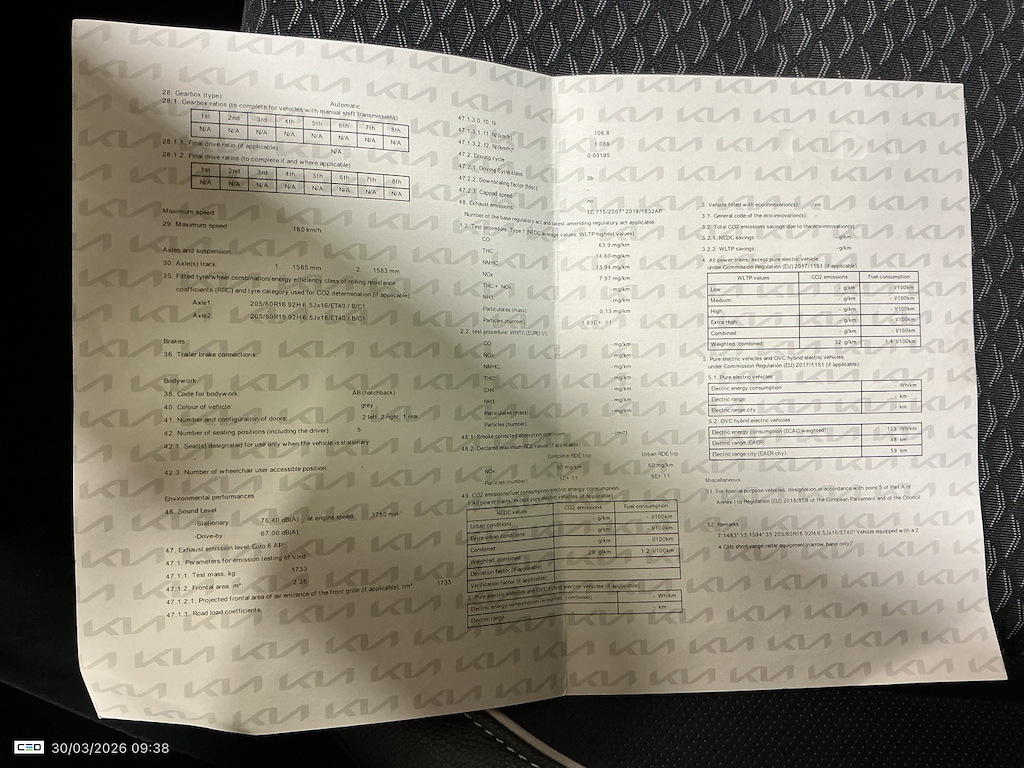 28. Gearbox (type): Automatic
28.1. Gearbox ratios (to complete for vehicles with manual shift transmissions)
1st 2nd 3rd 4th 5th 6th 7th 8th
N/A N/A N/A N/A N/A N/A N/A N/A
28.1.1. Final drive ratio (if applicable): N/A
28.1.2. Final drive ratios (to complete if and where applicable)
1st 2nd 3rd 4th 5th 6th 7th 8th
N/A N/A N/A N/A N/A N/A N/A N/A
Maximum speed
29. Maximum speed 160 km/h
Axles and suspension
30. Axle(s) track 1. 1585 mm 2. 1583 mm
35. Fitted tyre/wheel combination/energy efficiency class of rolling resistance
coefficients (RRC) and tyre category used for CO2 determination (if applicable)
Axle1: 205/60R16 92H 6.5Jx16/ET40 / B/C1
Axle2: 205/60R16 92H 6.5Jx16/ET40 / B/C1
Brakes
36. Trailer brake connections
Bodywork
38. Code for bodywork: AB (hatchback)
40. Colour of vehicle: grey
41. Number and configuration of doors: 2 left, 2 right, 1 rear
42. Number of seating positions (including the driver) 5
42.1. Seat(s) designated for use only when the vehicle is stationary
42.3. Number of wheelchair user accessible position
Environmental performances
46. Sound Level
-Stationary 76.40 dB(A) at engine speed 3750 min
-Drive-by 67.00 dB(A)
47. Exhaust emission level: Euro 6 AP
47.1. Parameters for emission testing of Vind
47.1.1. Test mass, kg: 1733
47.1.2. Frontal area, m² 2.26
47.1.2.1. Projected frontal area of air entrance of the front grille (if applicable), cm² 1733
47.1.3. Road load coefficients
47.1.3.0. f0, N 106.8
47.1.3.1. f1, N/(km/h) 1.088
47.1.3.2. f2, N/(km/h)² 0.03195
47.2. Driving cycle
47.2.1. Driving Cycle class 3b
47.2.2. Downscaling factor (fdsc)
47.2.3. Capped speed no
48. Exhaust emissions: EC 715/2007*2018/1832AP
Number of the base regulatory act and latest amending regulatory act applicable
1.2. Test procedure: Type 1 (NEDC average values, WLTP highest values)
CO 63.9 mg/km
THC 14.60 mg/km
NMHC 13.94 mg/km
NOx 7.97 mg/km
THC + NOx - mg/km
NH3 - mg/km
Particulates (mass) 0.13 mg/km
Particles (number) 1.83E+ 11
2.2. Test procedure: WHTC (EURO VI)
CO - mg/km
NOx - mg/km
NMHC - mg/km
THC - mg/km
CH4 - mg/km
NH3 - mg/km
Particulates (mass) - mg/km
Particles (number)
48.1. Smoke corrected absorption coefficient: (m-1)
48.2. Declared maximum RDE values (if applicable)
Complete RDE trip Urban RDE trip
NOx 60 mg/km 60 mg/km
Particles (number) 6E+ 11 6E+ 11
49. CO2 emissions/fuel consumption/electric energy consumption
1. All power trains, except pure electric vehicles (if applicable)
NEDC values CO2 emissions Fuel consumption
Urban conditions - g/km - l/100km
Extra-urban conditions - g/km - l/100km
Combined - g/km - l/100km
Weighted, combined 28 g/km 1.2 l/100km
Deviation factor (if applicable)
Verification factor (if applicable)
2. Pure electric vehicles and OVC hybrid electro vehicles (if applicable)
Electric energy consumption (weighted, combined) - Wh/km
Electric range - km
3. Vehicle fitted with eco-innovation(s): no
3.1. General code of the eco-innovation(s):
3.2. Total CO2 emissions savings due to the eco-innovation(s)
3.2.1. NEDC savings - g/km
3.2.2. WLTP savings - g/km
4. All power trains, except pure electric vehicle,
under Commission Regulation (EU) 2017/1151 (if applicable)
WLTP values CO2 emissions Fuel consumption
Low - g/km - l/100km
Medium: - g/km - l/100km
High: - g/km - l/100km
Extra High: - g/km - l/100km
Combined: - g/km - l/100km
Weighted, combined 32 g/km 1.4 l/100km
5. Pure electric vehicles and OVC hybrid electric vehicles,
under Commission Regulation (EU) 2017/1151 (if applicable)
5.1. Pure electric vehicles
Electric energy consumption - Wh/km
Electric range - km
Electric range city - km
5.2. OVC hybrid electric vehicles
Electric energy consumption (ECAC,weighted) 123 Wh/km
Electric range (EAER) 48 km
Electric range city (EAER city) 59 km
Miscellaneous
51. For special purpose vehicles: designation in accordance with point 5 of Part A of
Annex I to Regulation (EU) 2018/858 of the European Parliament and of the Council
52. Remarks
7.1483* 13.1594*35.205/60R16 92H,6.5Jx16/ET40* Vehicle equipped with a 2
4 GHz short range radar equipment (narrow band only)*
CEO 30/03/2026 09:38